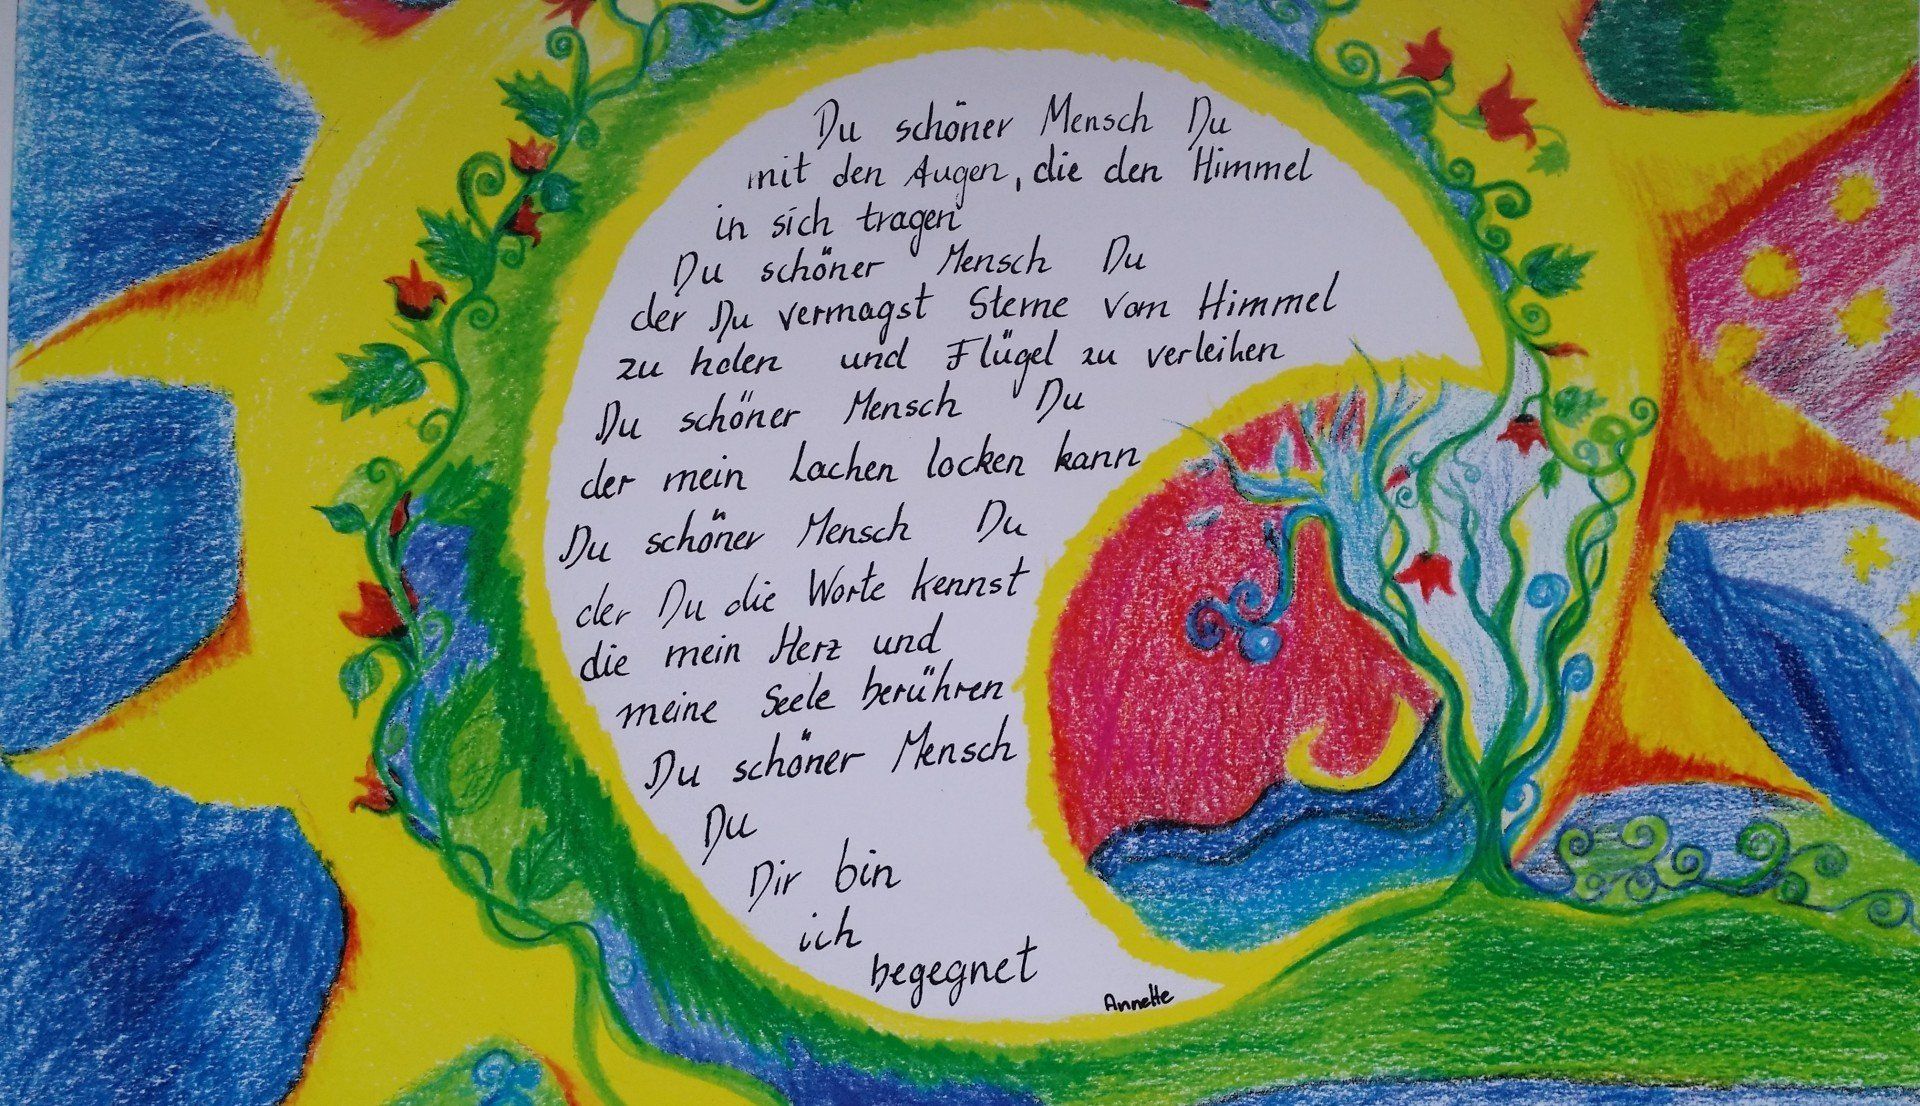 Du schöner Mensch Du
mit den Augen, die den Himmel
in sich tragen
Du schöner Mensch Du
der Du vermagst Sterne vom Himmel
zu holen und Flügel zu verleihen
Du schöner Mensch Du
der mein Lachen locken kann
Du schöner Mensch Du
der Du die Worte kennst
die mein Herz und
meine Seele berühren
Du schöner Mensch
Du
Dir bin
ich
begegnet
Annette